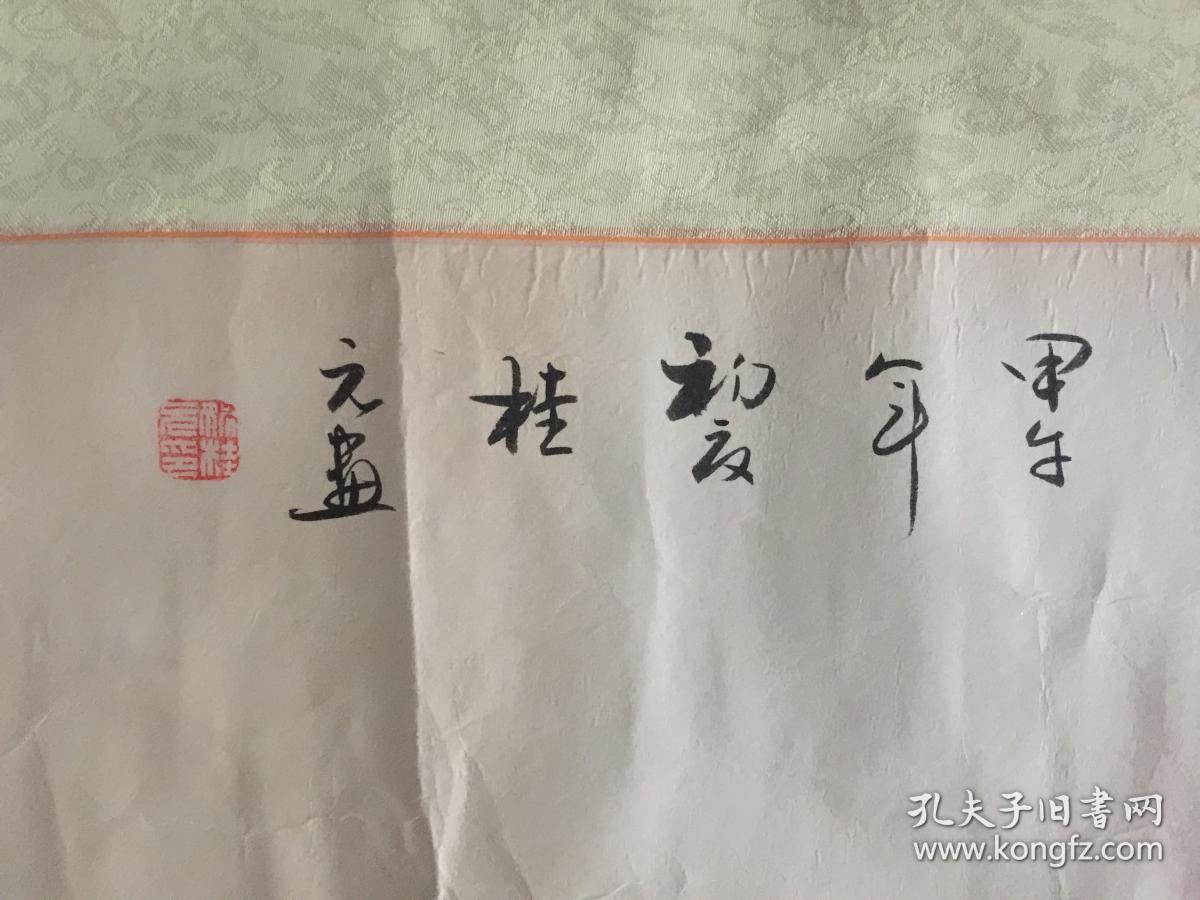 甲午
年
初夏
桂
元画
孔夫子旧書网
www.kongfz.com